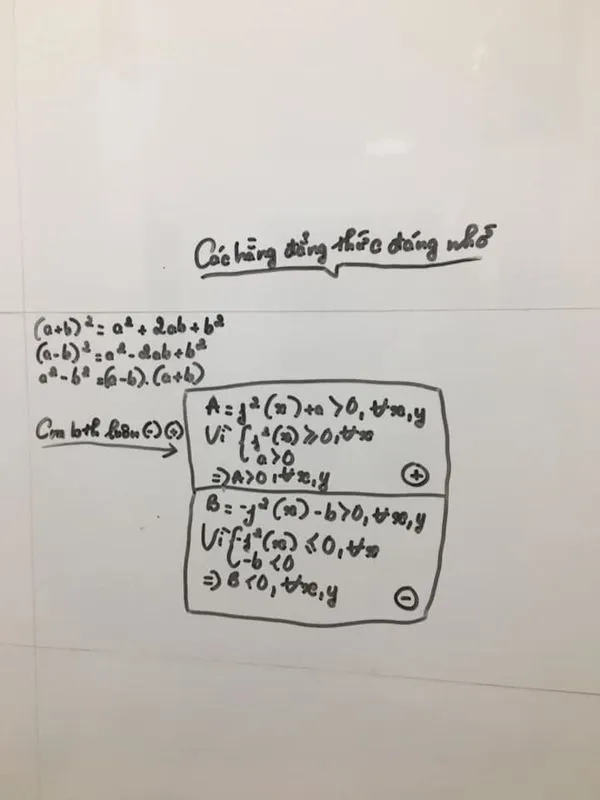 Các hằng đẳng thức đáng nhớ
(a+b)² = a² + 2ab + b²
(a-b)² = a² - 2ab + b²
a² - b² = (a-b).(a+b)
Cm bth luôn (-) (+)
A = f²(x) + a > 0, ∀x, y
Vì { f²(x) ≥ 0, ∀x
a > 0
=> A > 0, ∀x, y
+
B = -f²(x) - b > 0, ∀x, y
Vì { -f²(x) ≤ 0, ∀x
-b < 0
=> B < 0, ∀x, y
-